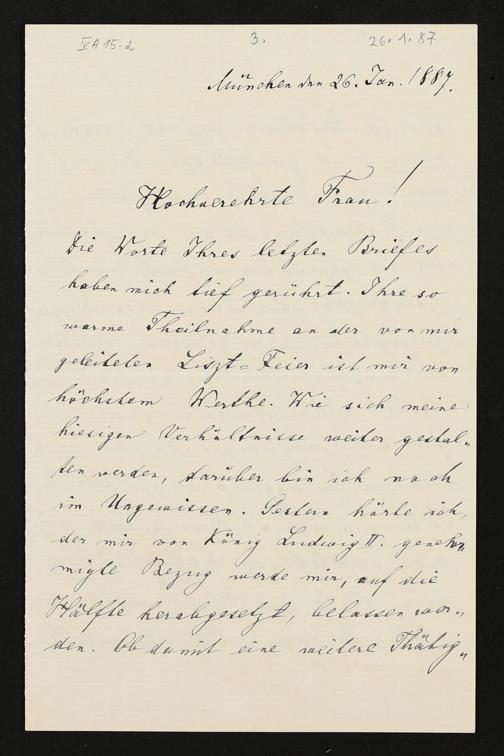 IV A 15-2 3. 26.1.87
München den 26. Jan. 1887.
Hochverehrte Frau!
Die Worte Ihres letzten Briefes
haben mich tief gerührt. Ihre so
warme Theilnahme an der von mir
geleiteten Liszt=Feier ist mir von
höchstem Werthe. Wie sich meine
hiesigen Verhältnisse weiter gestal„
ten werden, darüber bin ich noch
im Ungewissen. Gestern hörte ich,
der mir von König Ludwig II. geneh„
migte Bezug werde mir, auf die
Hälfte herabgesetzt, belassen wer„
den. Ob damit eine weitere Thätig„